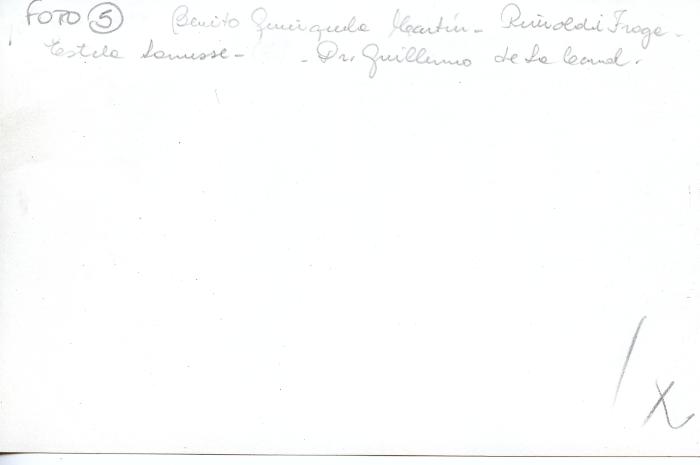 FOTO 5 Benito Quinquela Martín - Rinoldi Fraga -
Estela Lanusse - - Dr. Guillermo de la Canal.
X